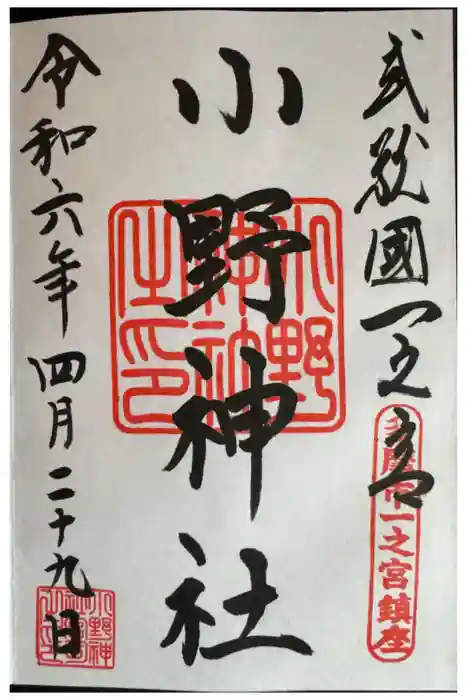 武蔵國一之宮
多摩市一之宮鎮座
小野神社
小野神社之印
令和六年四月二十九日